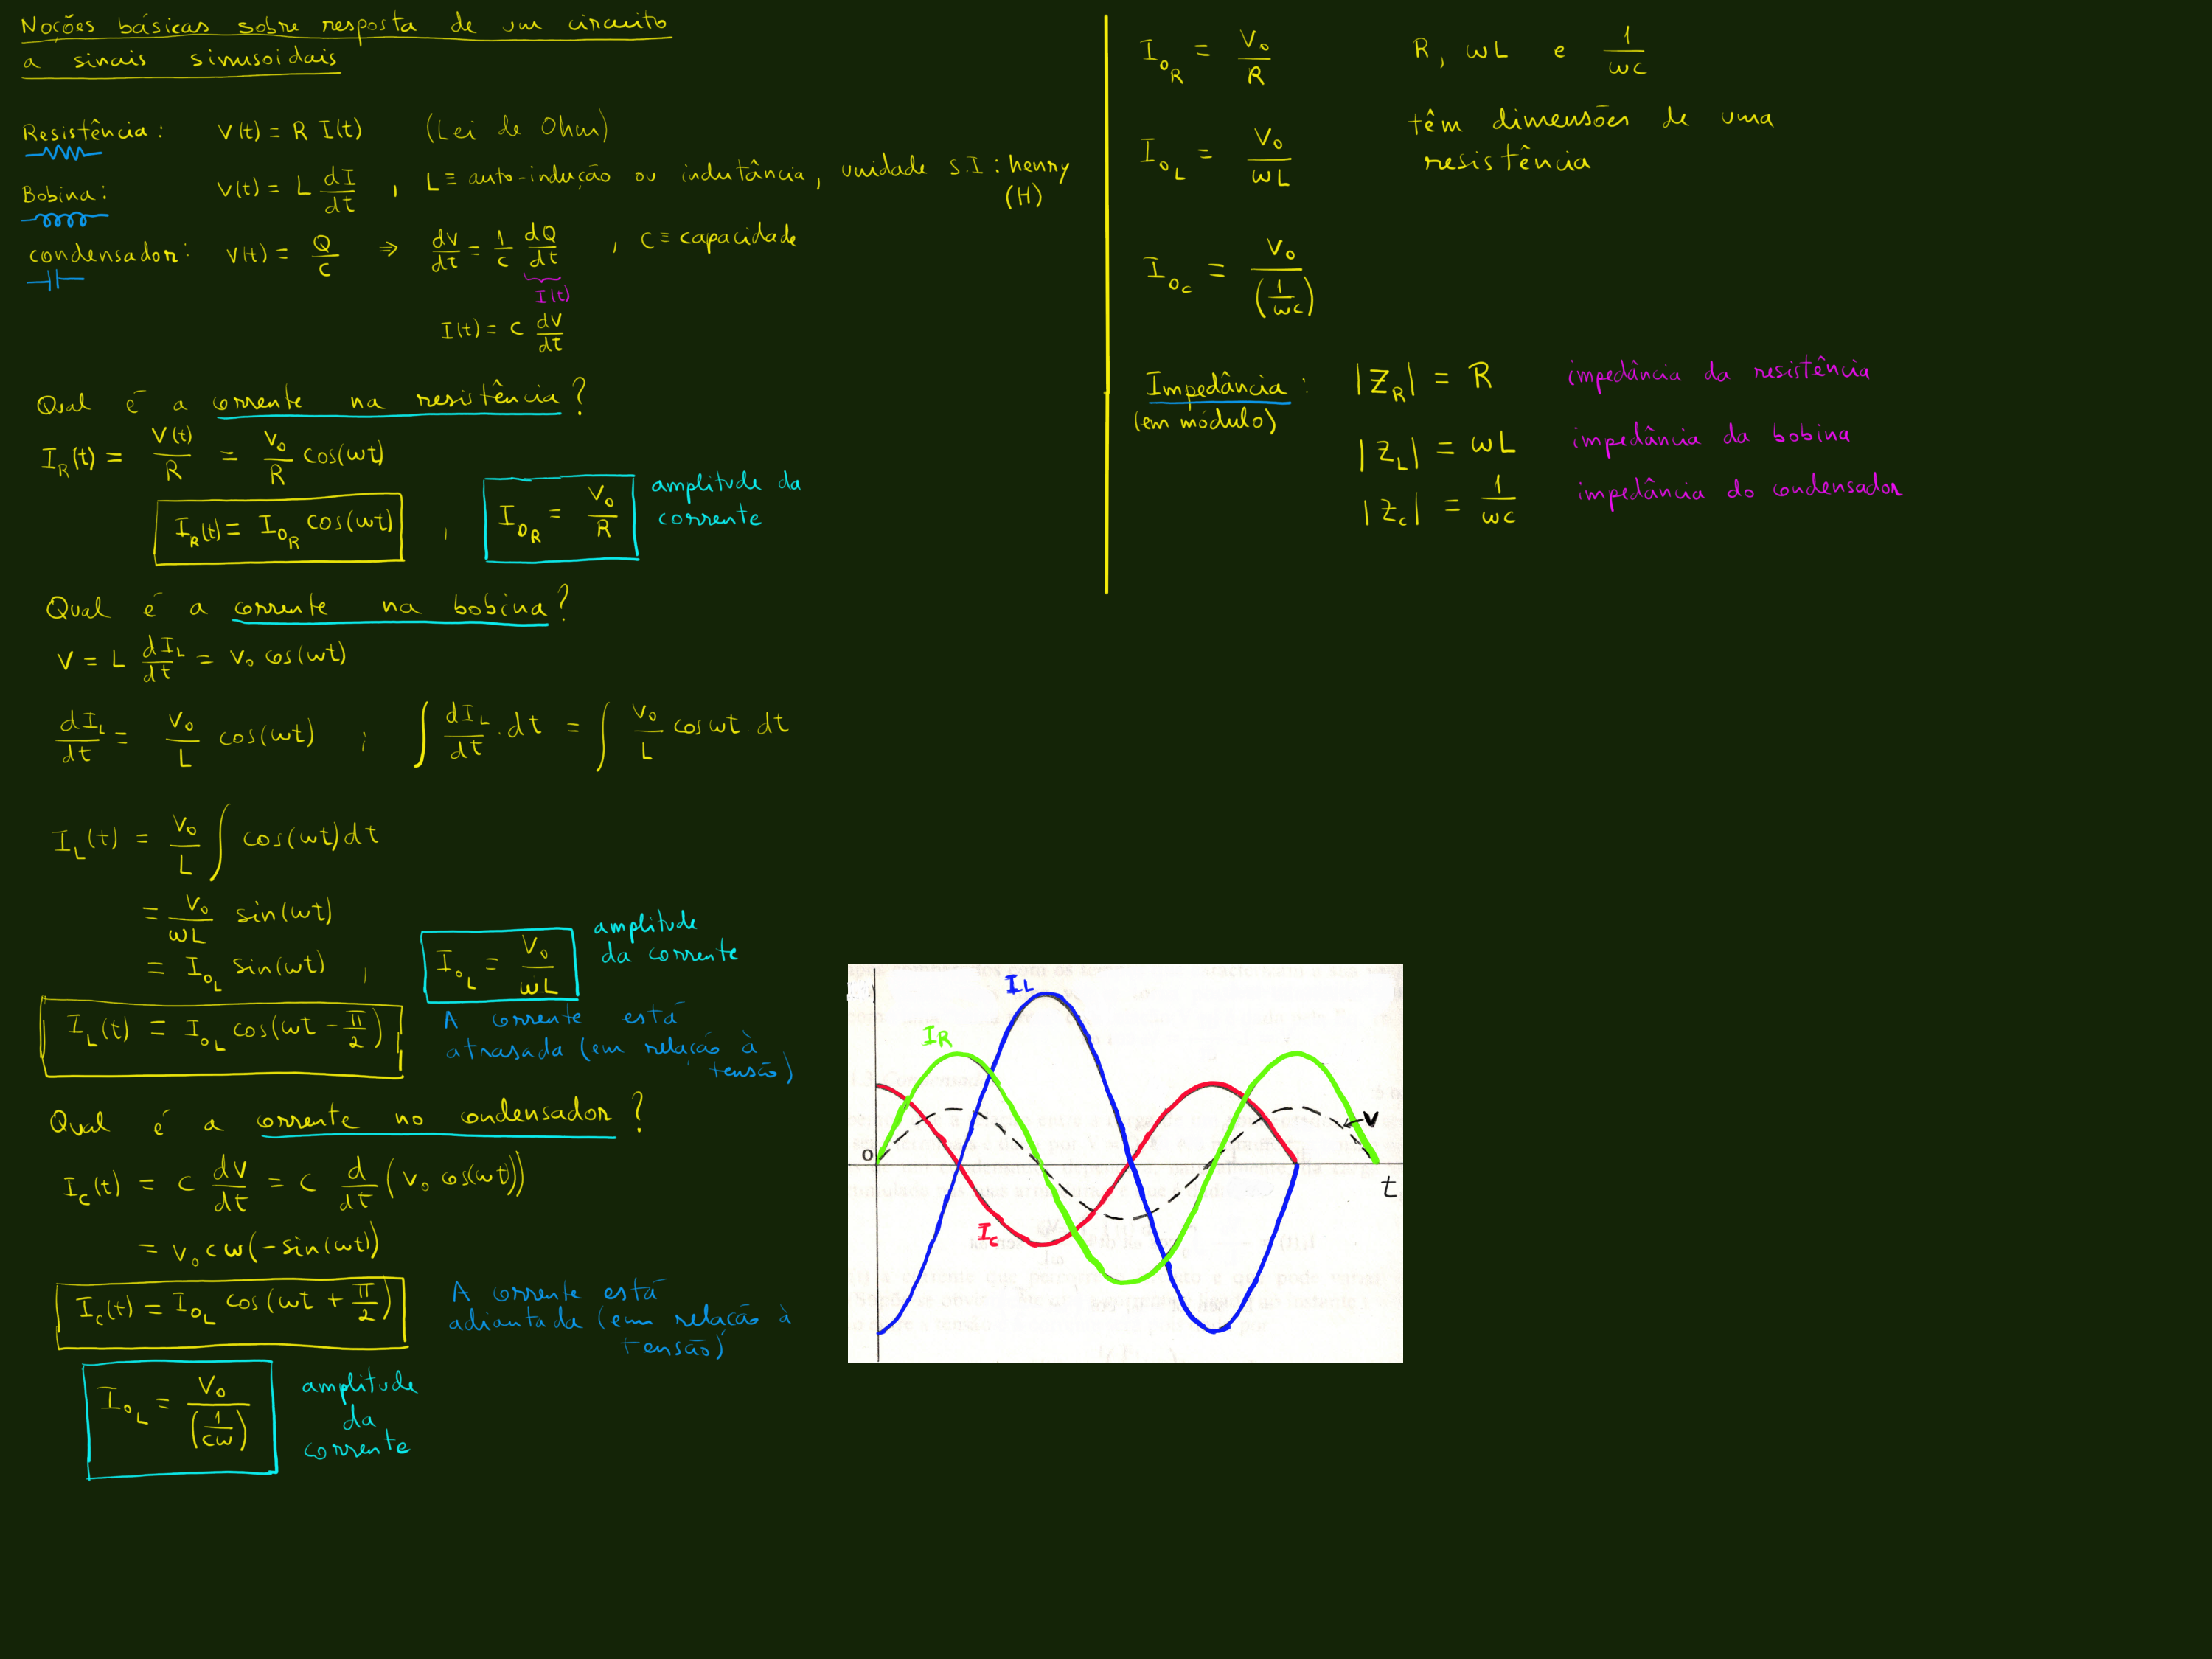 Noções básicas sobre resposta de um circuito
a sinais sinusoidais
Resistência: V(t) = R I(t) (Lei de Ohm)
Bobina: V(t) = L dI/dt , L ≡ auto-indução ou indutância, unidade S.I: henry
(H)
condensador: V(t) = Q/C ⇒ dV/dt = 1/C dQ/dt , C ≡ capacidade
I(t)
I(t) = C dV/dt
Qual é a corrente na resistência?
I_R(t) = V(t)/R = V₀/R cos(ωt)
I_R(t) = I_0R cos(ωt) , I_0R = V₀/R amplitude da
corrente
Qual é a corrente na bobina?
V = L dI_L/dt = V₀ cos(ωt)
dI_L/dt = V₀/L cos(ωt) ; ∫ dI_L/dt . dt = ∫ V₀/L cos ωt . dt
I_L(t) = V₀/L ∫ cos(ωt) dt
= V₀/ωL sin(ωt)
= I_0L sin(ωt) , I_0L = V₀/ωL amplitude
da corrente
I_L(t) = I_0L cos(ωt - π/2) A corrente está
atrasada (em relação à
tensão)
Qual é a corrente no condensador?
I_C(t) = C dV/dt = C d/dt (V₀ cos(ωt))
= V₀ C ω (-sin(ωt))
I_C(t) = I_0L cos(ωt + π/2) A corrente está
adiantada (em relação à
tensão)
I_0L = V₀/(1/Cω) amplitude
da
corrente
I_0R = V₀/R R, ωL e 1/ωC
I_0L = V₀/ωL têm dimensões de uma
resistência
I_0C = V₀/(1/ωC)
Impedância: |Z_R| = R impedância da resistência
(em módulo)
|Z_L| = ωL impedância da bobina
|Z_C| = 1/ωC impedância do condensador
I_L
I_R
V
0
t
I_C